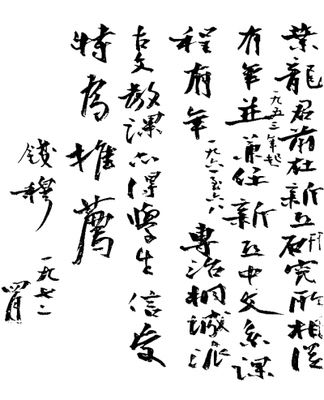 葉龍君前在新亞研究所相從
一九五三年起
有年並兼任新亞中文系課
程有年
一九六一至六八
專治桐城派
古文教課亦得學生信受
特為推薦
錢穆
一九七二
四月